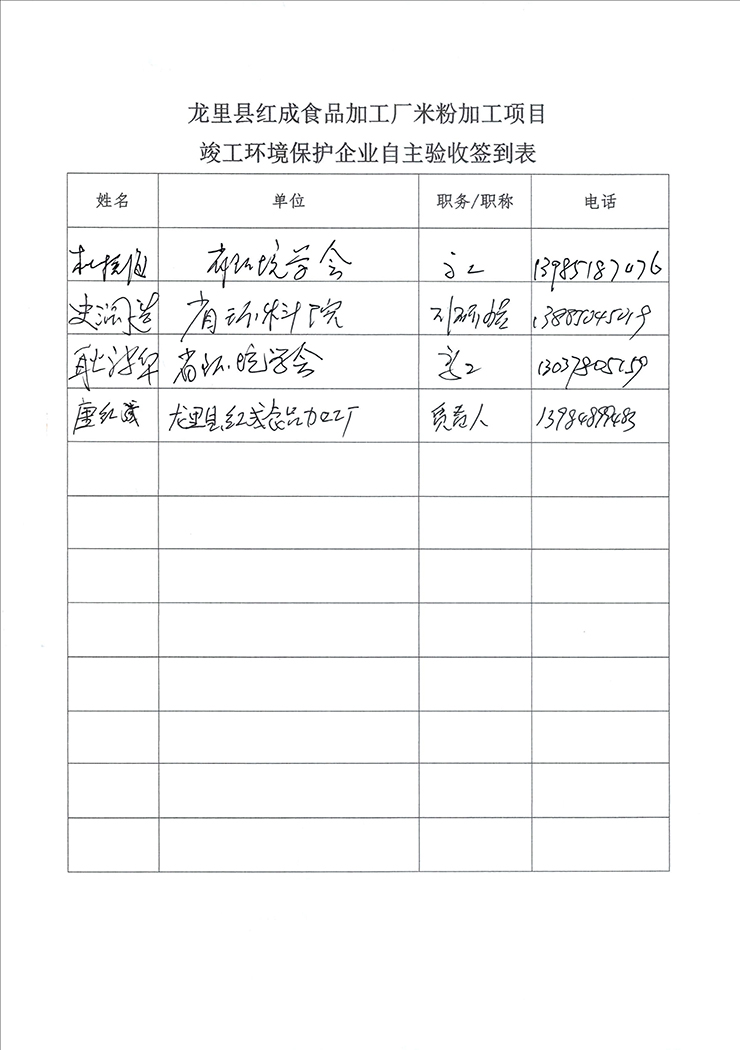 龙里县红成食品加工厂米粉加工项目
竣工环境保护企业自主验收签到表
姓名 单位 职务/职称 电话
省环境学会 高工 13985187076
省环科院 副研究员 13885045019
省环境学会 高工 13037805159
唐红成 龙里县红成食品加工厂 负责人 13984899483